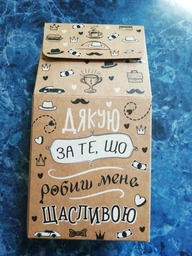 ДЯКУЮ
ЗА ТЕ, ЩО
робиш мене
ЩАСЛИВОЮ